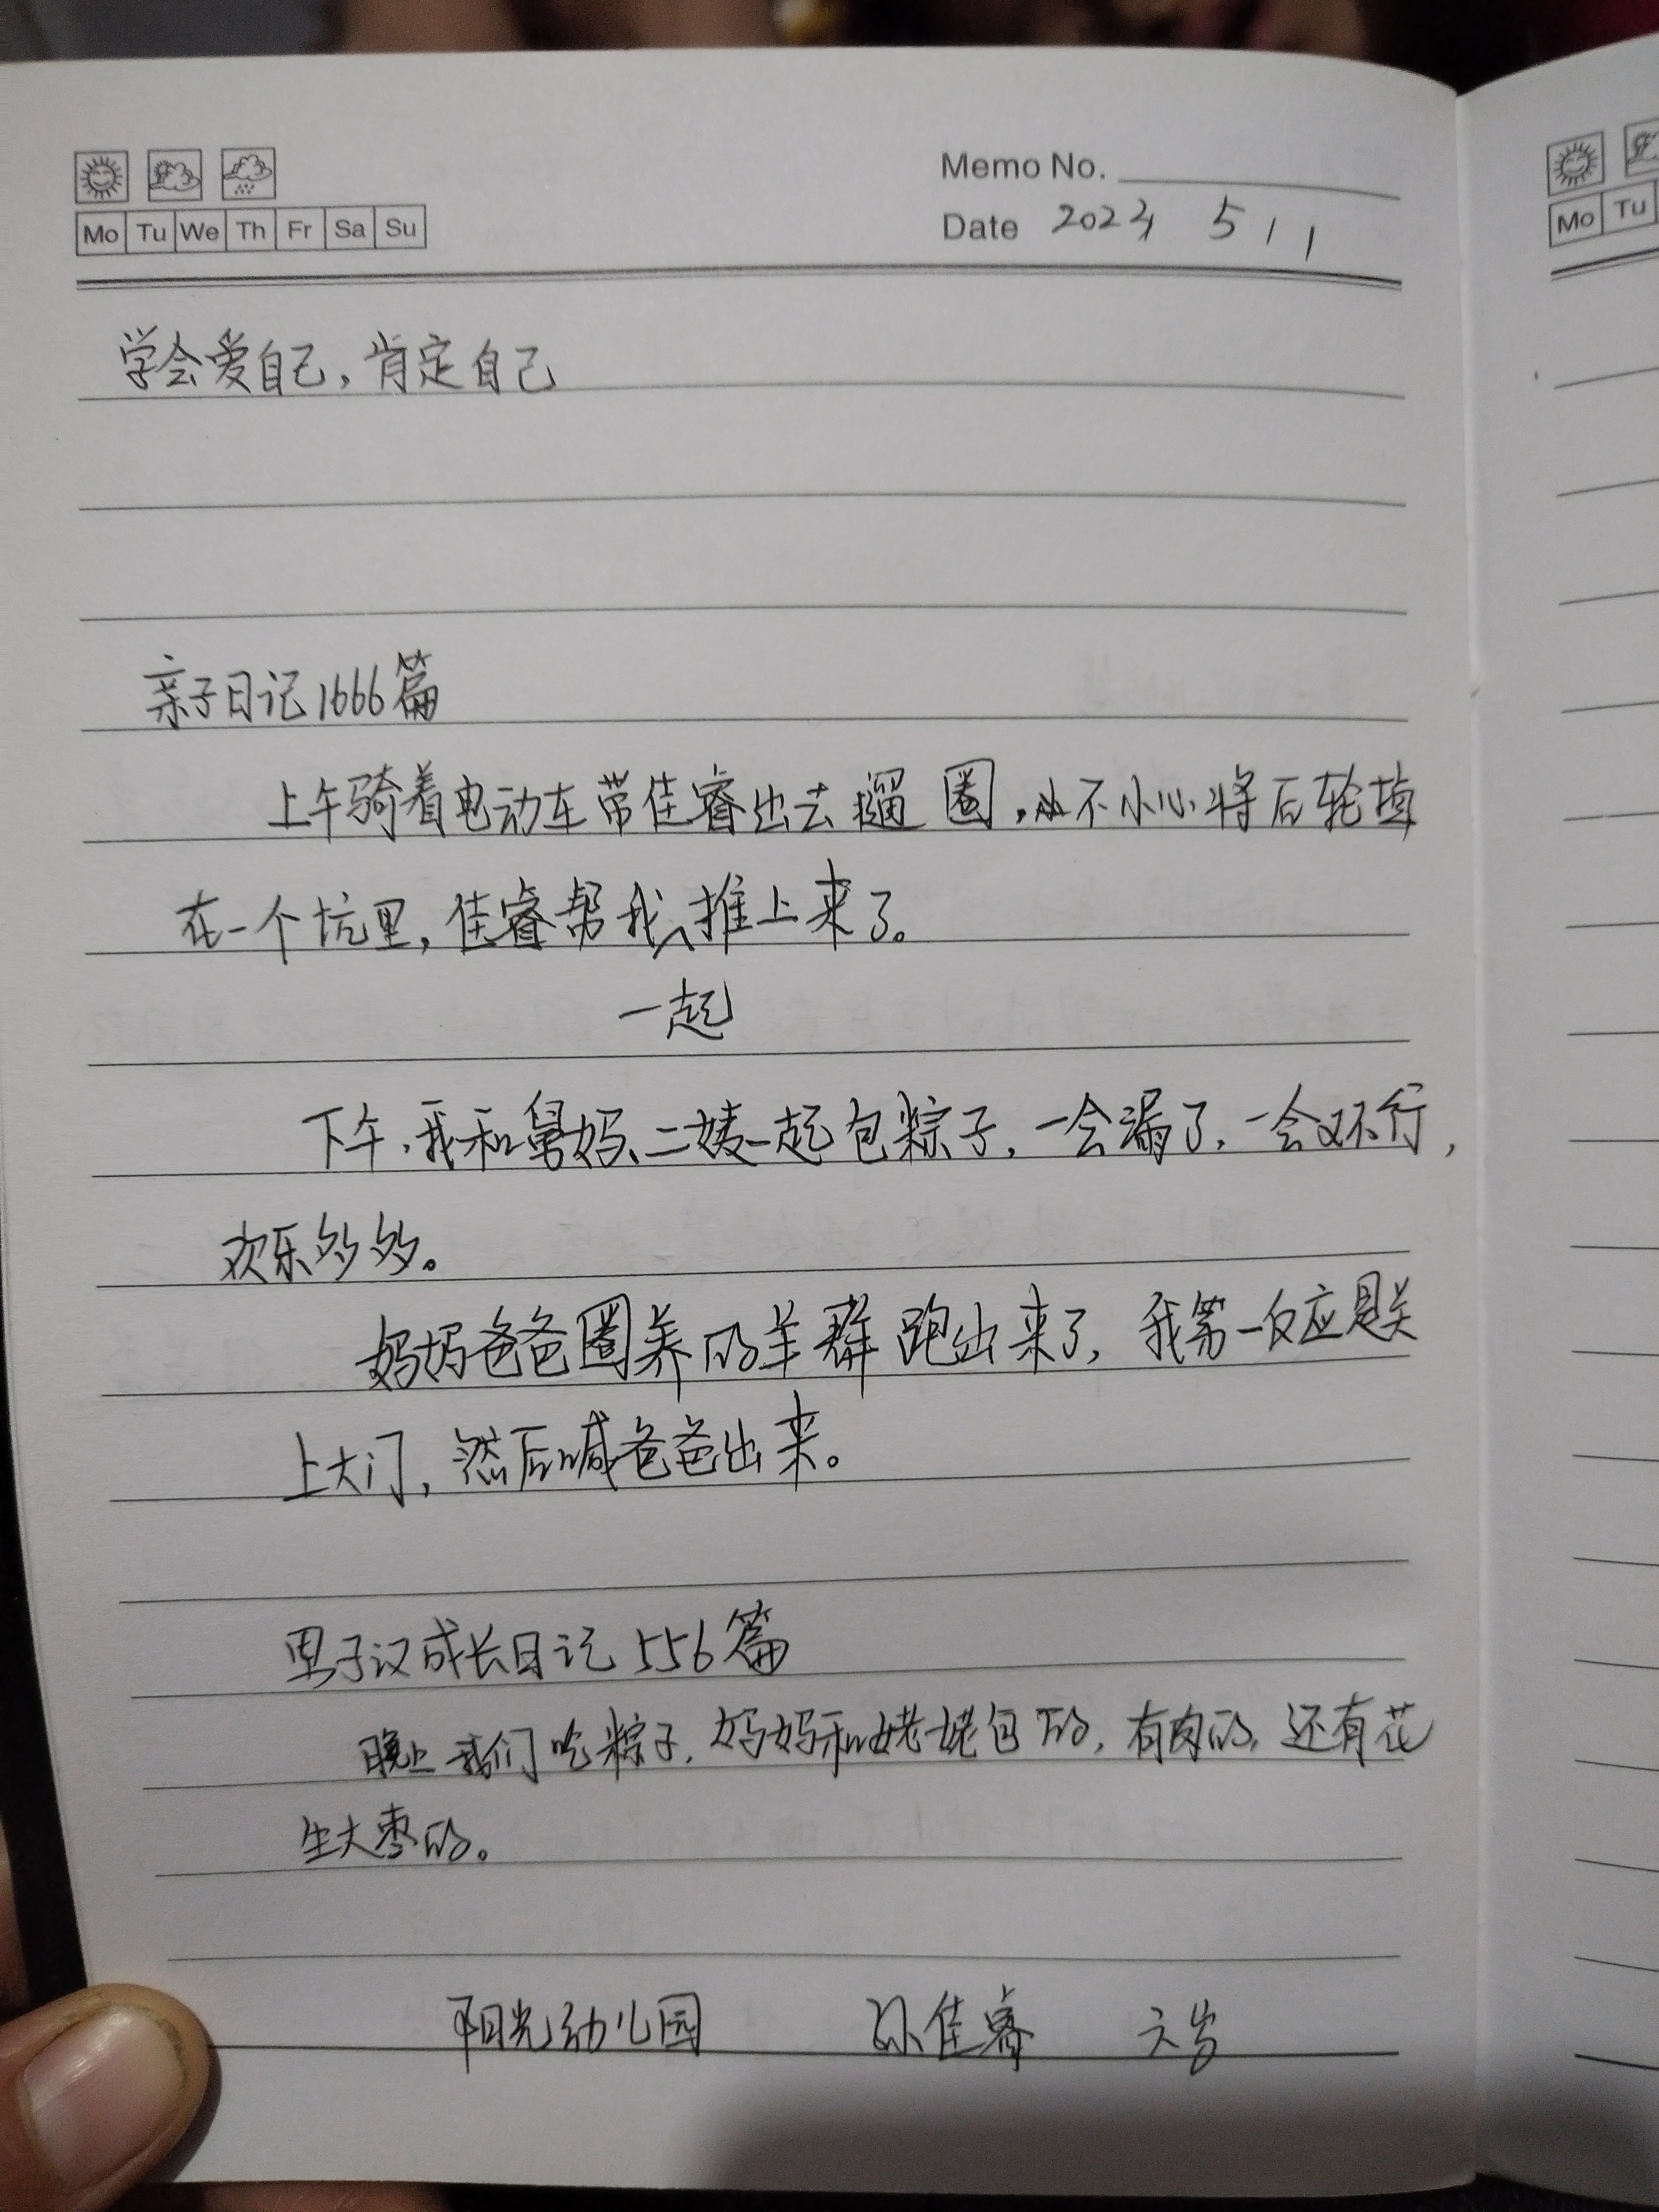 Memo No.
Mo Tu We Th Fr Sa Su
Date 2024 5 1 1
学会爱自己,肯定自己
亲子日记1666篇
上午骑着电动车带佳睿出去遛圈,不小心将后轮
在一个坑里,佳睿帮我推上来了。
一起
下午,我和舅妈、二姨一起包粽子,一会漏了,一会又不行,
欢乐多多。
妈妈爸爸圈养的羊群跑出来了,我第一反应是关
上大门,然后喊爸爸出来。
男子汉成长日记556篇
晚上我们吃粽子,妈妈和姥姥包的,有肉的,还有花
生大枣的。
阳光幼儿园 孙佳睿 六岁
Mo Tu